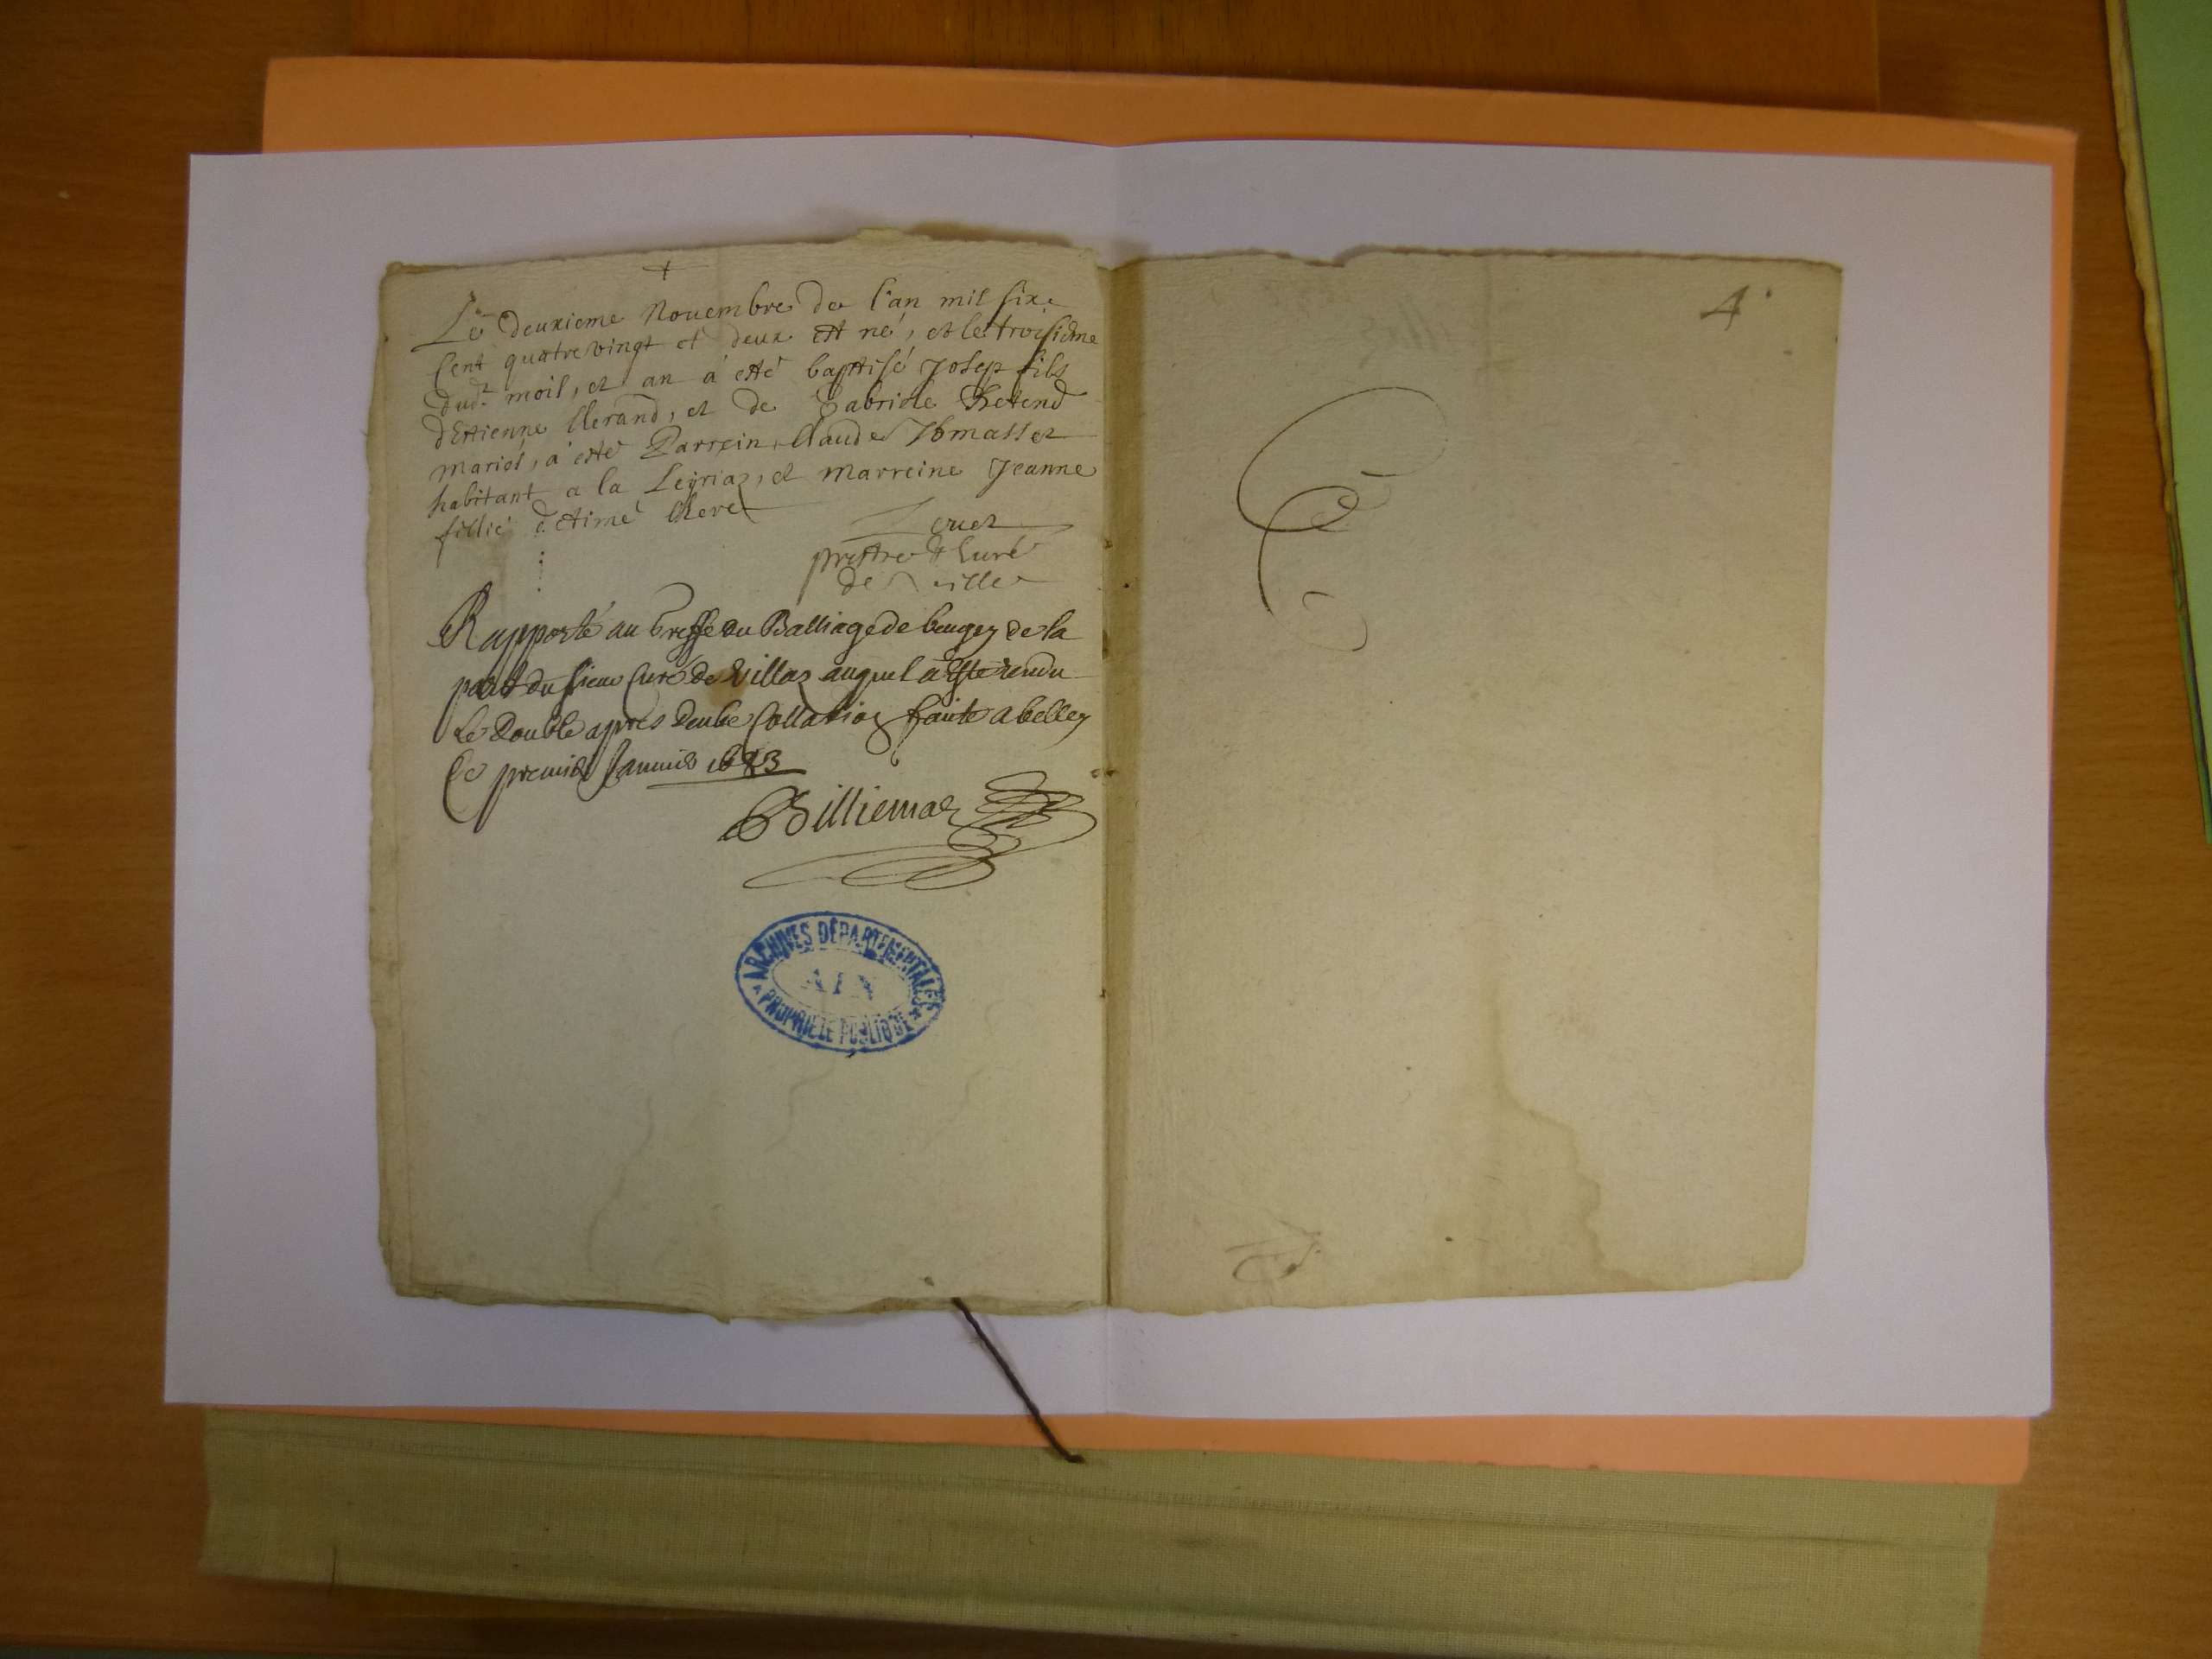 Le deuxieme Novembre de l'an mil six
Cent quatre vingt et deux est né, et le troisieme
dud.t mois, et an a esté baptisé Josep fils
d'Estienne Clerand, et de Gabriele
mariés, a esté Parrein Claude Tomasset
habitant a la Leyriaz, et marreine Jeanne
fillie d'Aimé
prestre et Curé
de Ville
Rapporté au Greffe du Balliage de beugey de la
part du sieur Curé de Villaz auquel a Esté rendu
Le double apres deube Collation faite a belley
Ce premier Januier 1683
Billiemaz
ARCHIVES DÉPARTEMENTALES
AIN
PROPRIÉTÉ PUBLIQUE
4